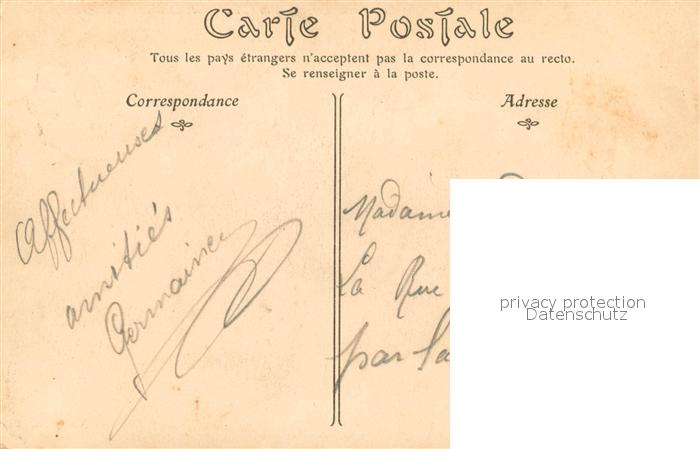 Carte Postale
Tous les pays étrangers n'acceptent pas la correspondance au recto.
Se renseigner à la poste.
Correspondance
Adresse
Affectueuses
amitiés
Germaine
Madame
La Rue
par La
privacy protection
Datenschutz